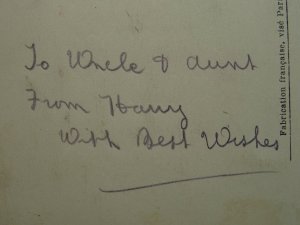 To Uncle & Aunt
From Harry
With Best Wishes
Fabrication française, visé Par